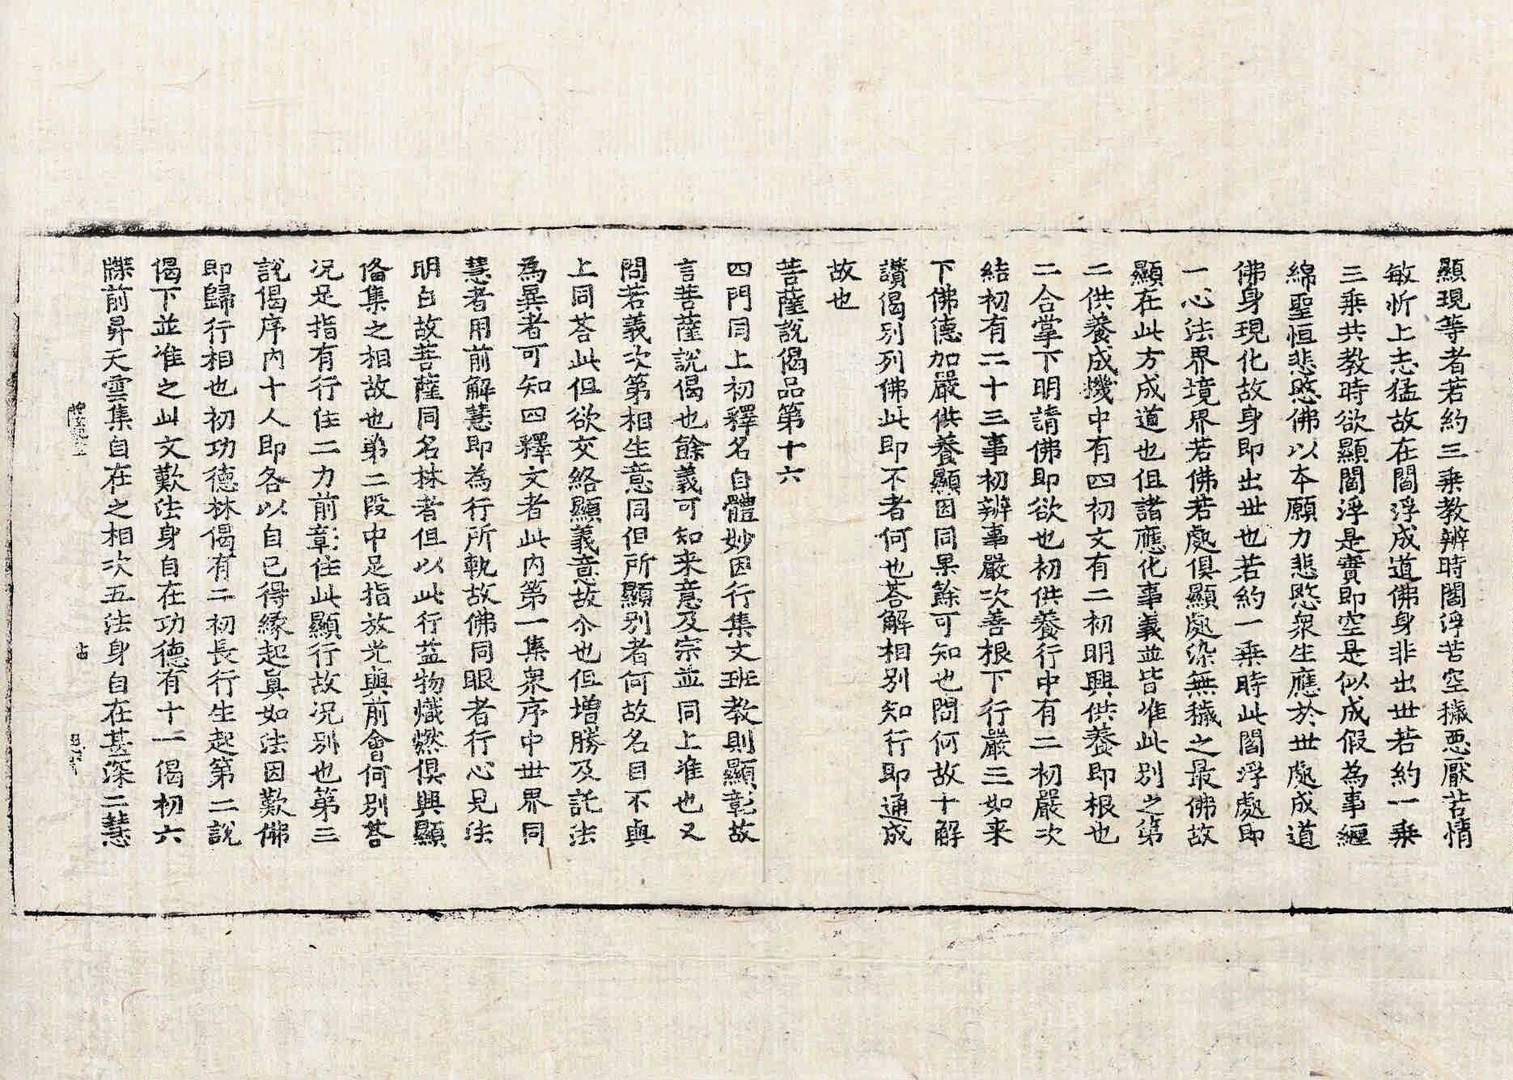 顯現等者若約三乘教辨時閻浮苦空穢惡厭苦情
敏忻上志猛故在閻浮成道佛身非出世若約一乘
三乘共教時欲顯閻浮是實即空是似成假為事纏
綿聖恒悲愍佛以本願力悲愍衆生應於世處成道
佛身現化故身即出世也若約一乘時此閻浮處即
一心法界境界若佛若處俱顯處染無穢之最佛故
顯在此方成道也但諸應化事義並皆准此別之第
二供養成機中有四初文有二初明興供養即根也
二合掌下明請佛即欲也初供養行中有二初嚴次
結初有二十三事初辨事嚴次善根下行嚴三如来
下佛德加嚴供養顯因同果餘可知也問何故十解
讚偈別列佛此即不者何也荅解相別知行即通成
故也
菩薩說偈品第十六
四門同上初釋名自體妙因行集文班教則顯彰故
言菩薩說偈也餘義可知来意及宗並同上准也又
問若義次第相生意同但所顯別者何故名目不與
上同荅此但欲交絡顯義意故尒也但增勝及託法
為異者可知四釋文者此内第一集衆序中世界同
慧者用前解慧即為行所軌故佛同眼者行心見法
明白故菩薩同名林者但以此行益物熾燃俱興顯
俻集之相故也第二段中足指放光與前會何別荅
况足指有行住二力前彰住此顯行故况別也第三
說偈序内十人即各以自已得緣起眞如法因歎佛
即歸行相也初功德林偈有二初長行生起第二說
偈下並准之此文歎法身自在功德有十一偈初六
牒前昇天雲集自在之相次五法身自在甚深二慧